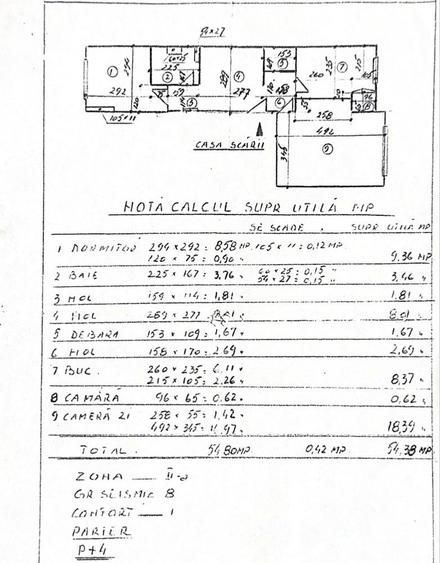 54×27
CASA SCĂRII
NOTĂ CALCUL SUPR UTILĂ MP
SE SCADE. SUPR UTILĂ MP
1 DORMITOR 294×292 = 8,58 MP. 105×11 = 0,12 MP
120 × 75 = 0,90 9,36 MP
2 BAIE 225 × 167 = 3,76 60×25 = 0,15
54×27 = 0,15 3,46
3 HOL 159 × 114 = 1,81 1,81
4 HOL 289 × 277 8,01
5 DEBARA 153 × 109 = 1,67 1,67
6 HOL 158 × 170 = 2,69 2,69
7 BUC. 260 × 235 = 6.11
215 × 105 = 2.26 8,37
8 CĂMARĂ 96 × 65 = 0.62 0,62
9 CAMERĂ ZI 258 × 55 = 1,42
492 × 345 = 16,97 18,39
TOTAL. 54,80 MP 0,42 MP 54.38 MP
ZONA — II-a
GR SEISMIC 8
CONFORT — 1
PARTER
P+4